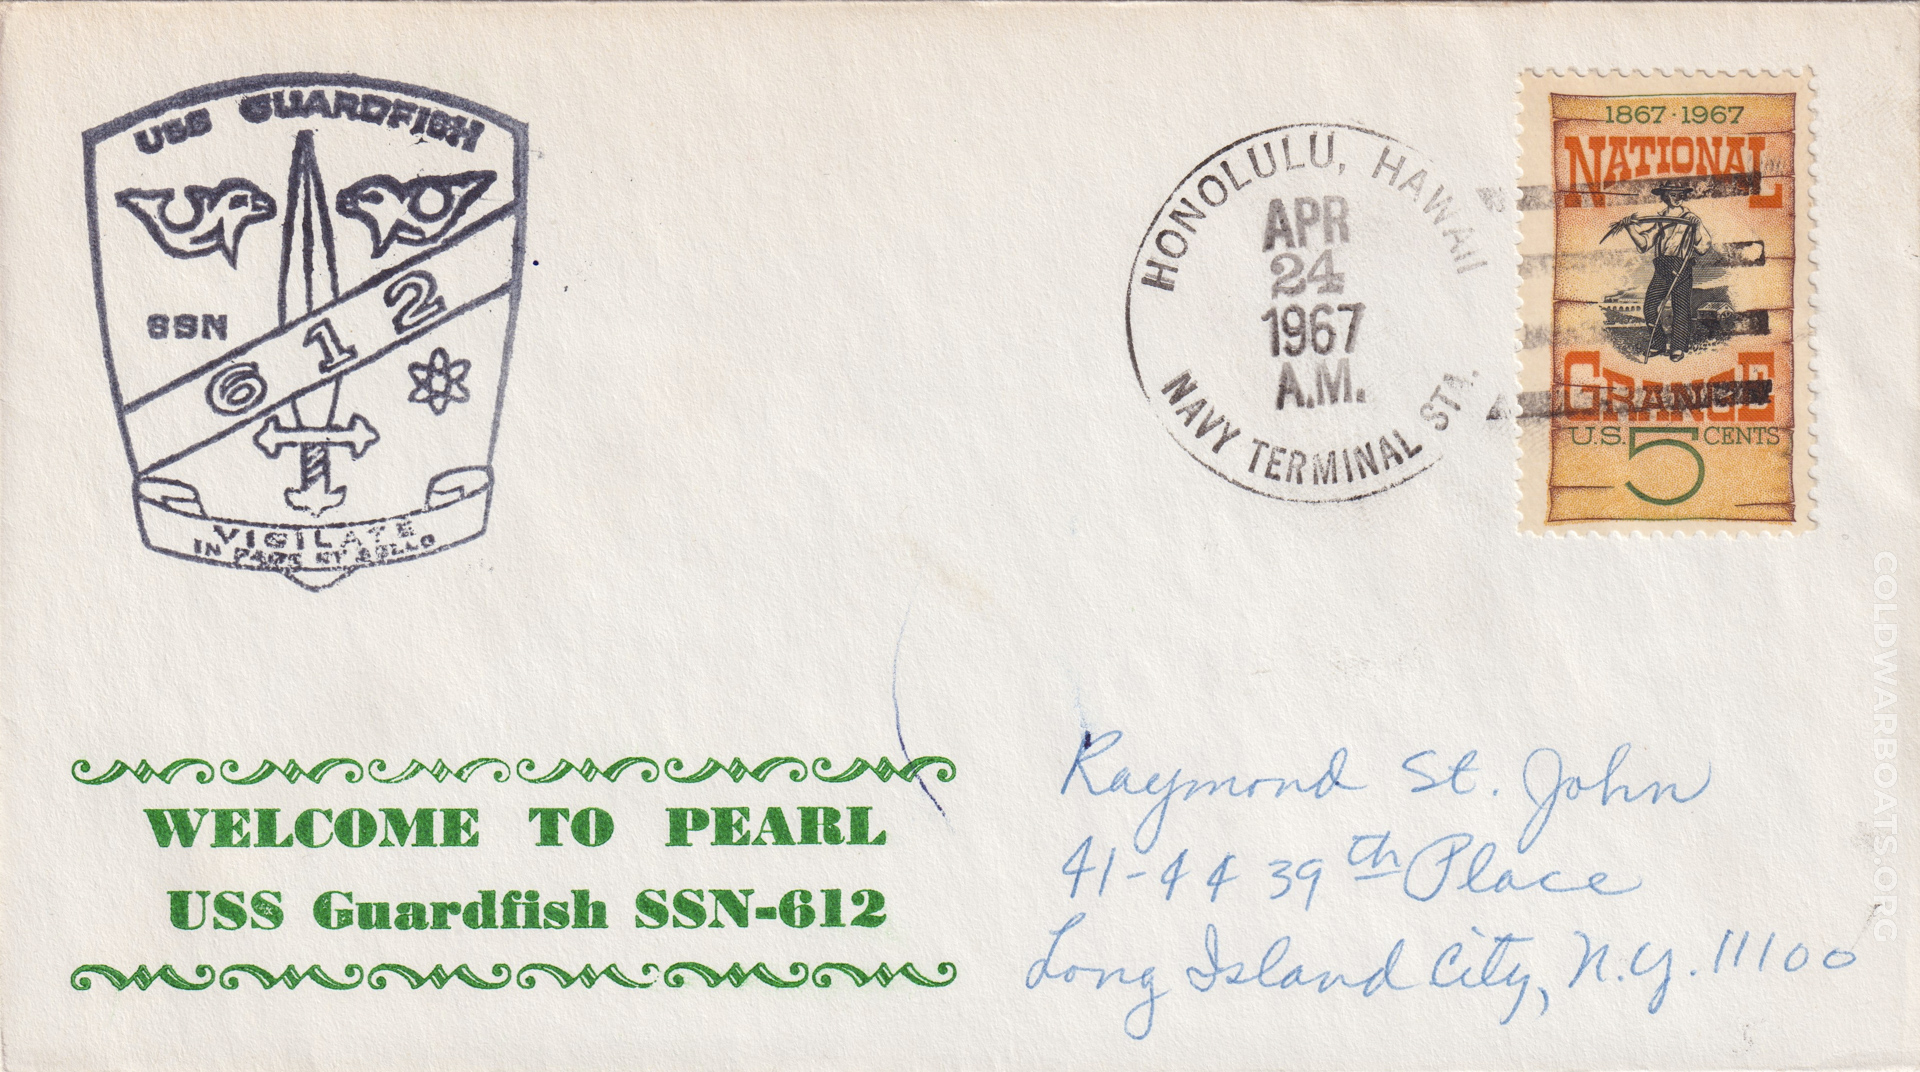 USS GUARDFISH
SSN
612
VIGILATE
IN PACE ET BELLO
HONOLULU, HAWAII
APR
24
1967
A.M.
NAVY TERMINAL STA.
1867·1967
NATIONAL
GRANGE
U.S. 5 CENTS
WELCOME TO PEARL
USS Guardfish SSN-612
Raymond St. John
41-44 39th Place
Long Island City, N.Y. 11100
COLDWARBOATS.ORG